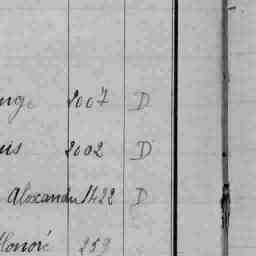 ange 2007 D
uis 2002 D
Alexandre 1422 D
Honoré 259